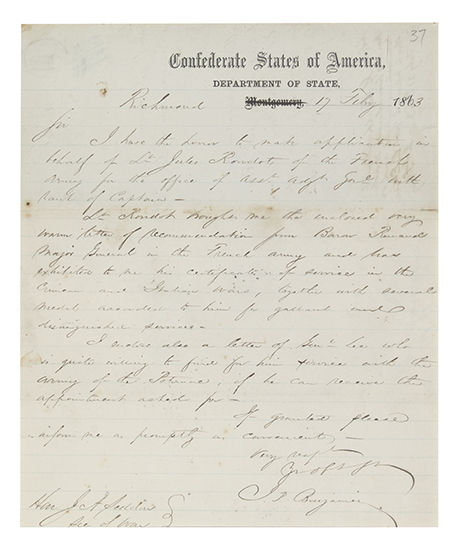 37
Confederate States of America,
DEPARTMENT OF STATE,
Richmond Montgomery, 17 Feby 1863
Sir
I have the honor to make application in
behalf of Lt Jules Rondot of the French
Army for the office of Asst Adjt Genl with
rank of Captain —
Lt Rondot brought me the enclosed very
warm letter of recommendation from Baron
Major General in the French army and has
exhibited to me his certificates of service in the
Crimean and Italian Wars, together with several
medals awarded to him for gallant and
distinguished services —
I enclose also a letter of Genl Lee who
is quite willing to find for him service with the
army of the Potomac, if he can receive the
appointment asked for —
If granted please
inform me as promptly as convenient —
Very respy
Yr Obt St
J. P. Benjamin
Hon J A Seddon
Sec of War